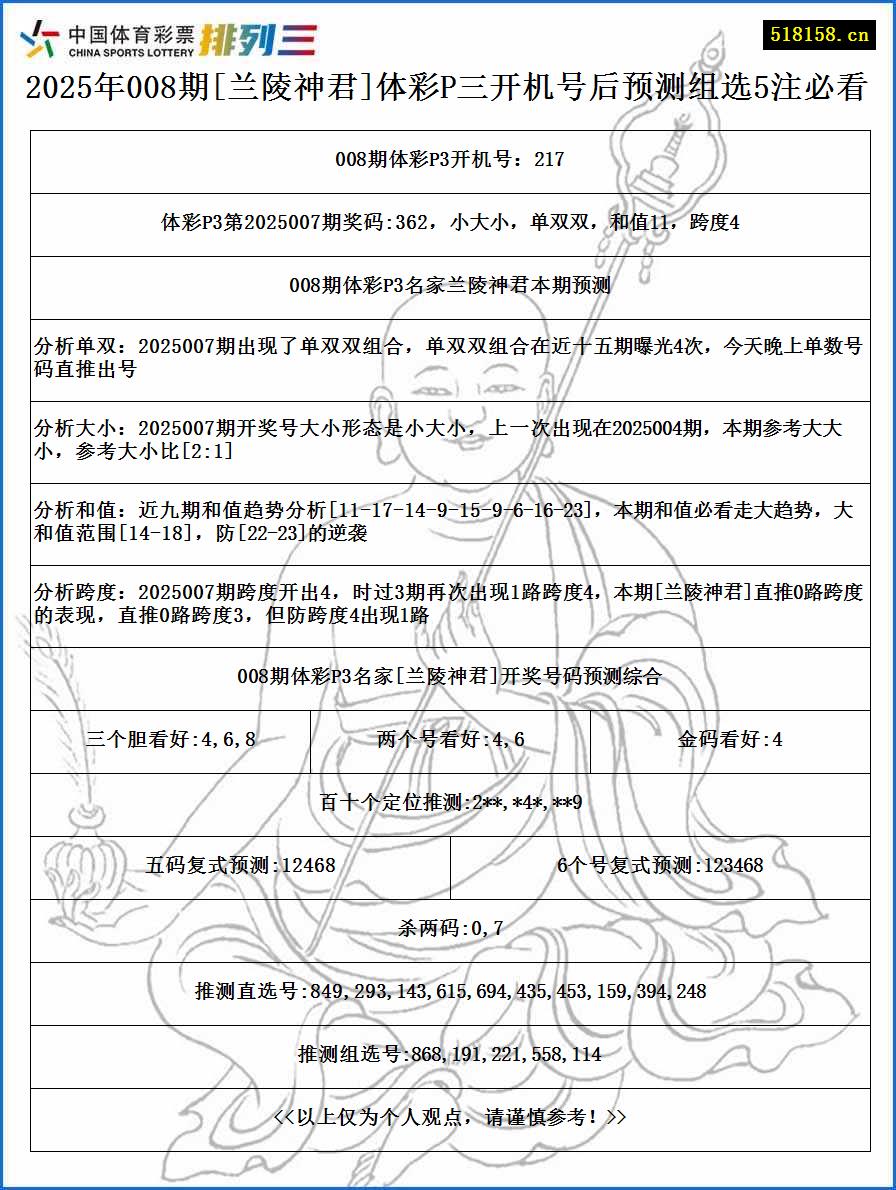 中国体育彩票
CHINA SPORTS LOTTERY
排列三
518158.cn
2025年008期[兰陵神君]体彩P三开机号后预测组选5注必看
008期体彩P3开机号：217
体彩P3第2025007期奖码:362，小大小，单双双，和值11，跨度4
008期体彩P3名家兰陵神君本期预测
分析单双：2025007期出现了单双双组合，单双双组合在近十五期曝光4次，今天晚上单数号
码直推出号
分析大小：2025007期开奖号大小形态是小大小，上一次出现在2025004期，本期参考大大
小，参考大小比[2:1]
分析和值：近九期和值趋势分析[11-17-14-9-15-9-6-16-23]，本期和值必看走大趋势，大
和值范围[14-18]，防[22-23]的逆袭
分析跨度：2025007期跨度开出4，时过3期再次出现1路跨度4，本期[兰陵神君]直推0路跨度
的表现，直推0路跨度3，但防跨度4出现1路
008期体彩P3名家[兰陵神君]开奖号码预测综合
三个胆看好:4,6,8
两个号看好:4,6
金码看好:4
百十个定位推测:2**,*4*,**9
五码复式预测:12468
6个号复式预测:123468
杀两码:0,7
推测直选号:849,293,143,615,694,435,453,159,394,248
推测组选号:868,191,221,558,114
<<以上仅为个人观点，请谨慎参考！>>